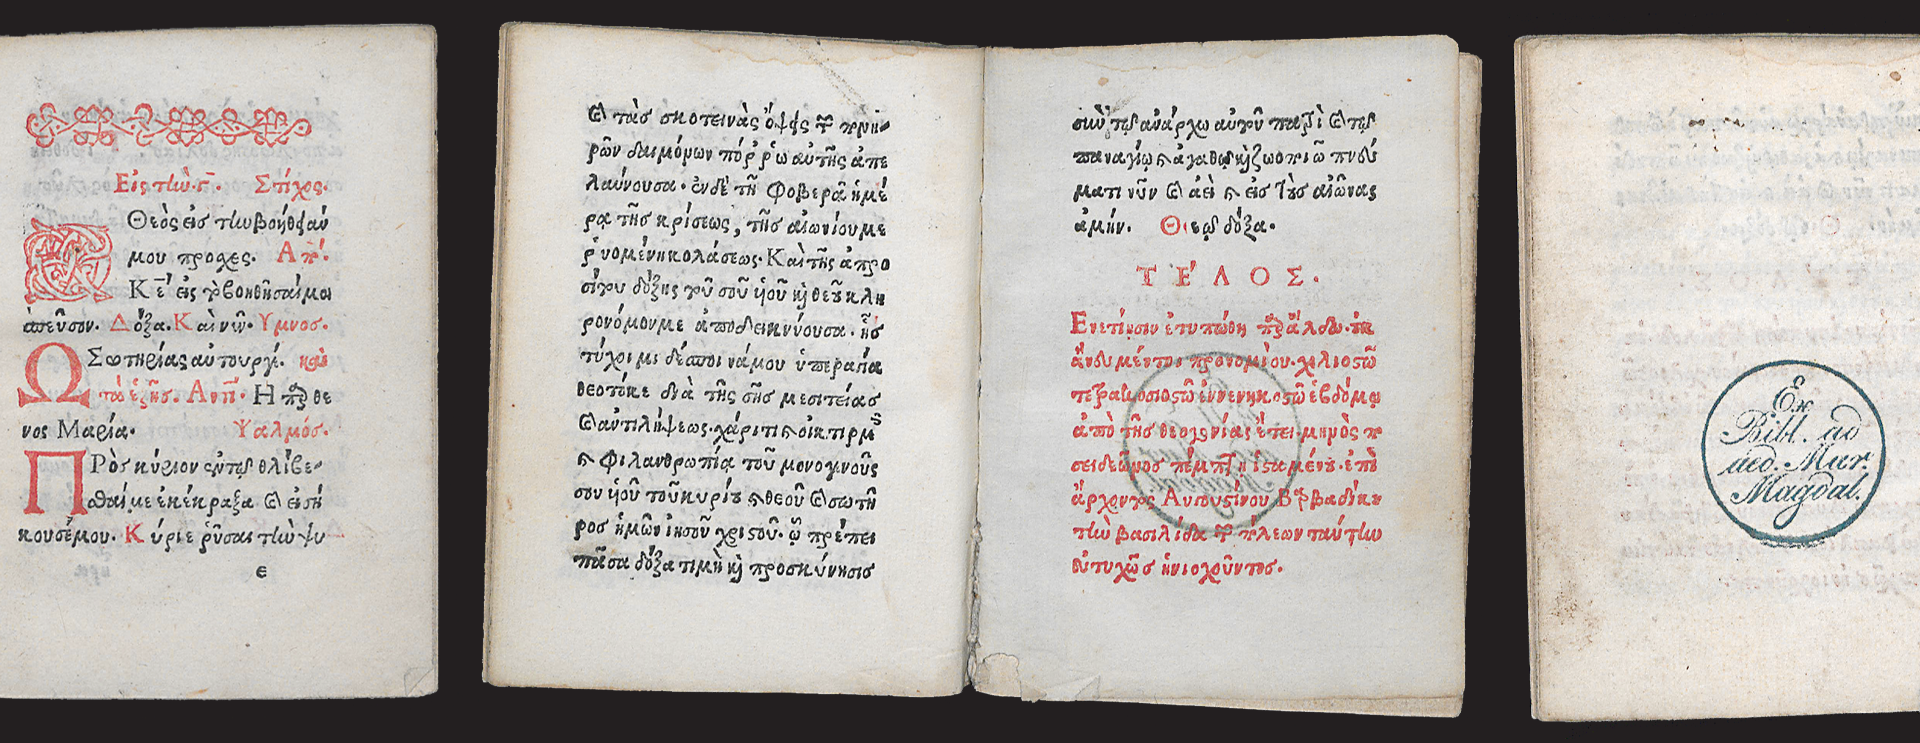 Εἰς τὴν·γ̅. Στίχος.
Θεὸς εἰς τὴν βοήθειάν
μου πρόσχες. Ἀπό.
Κε̅ εἰς τὸ βοηθῆσαί μοι
σπεῦσον. Δόξα. Καὶ νῦν. Ὕμνος.
Ὦ Σωτηρίας αὐτουργέ. καὶ
τὰ ἑξῆς. Ἀντ. Ἡ παρθέ
νος Μαρία. Ψαλμός.
Πρὸς κύριον ἐν τῷ θλίβε-
σθαί με ἐκέκραξα καὶ εἰσή
κουσέ μου. Κύριε ῥῦσαι τὴν ψυ
ε
καὶ τὰς σκοτεινὰς ὄψεις τῶν πονη-
ρῶν δαιμόνων πόῤῥω αὐτῆς ἀπε
λαύνουσα. ἐν δὲ τῇ φοβερᾷ ἡμέ
ρᾳ τῆς κρίσεως, τῆς αἰωνίου με
ῥυομένη κολάσεως. Καὶ τῆς ἀπρο
σίτου δόξης τοῦ σοῦ ὑοῦ καὶ θεοῦ κλη
ρονόμον με ἀποδεικνύουσα. ἧς
τύχοιμι δέσποινά μου ὑπεραγία
θεοτόκε διὰ τῆς σῆς μεσιτείας
καὶ ἀντιλήψεως. χάριτι καὶ οἰκτιρμοῖς
καὶ φιλανθρωπίᾳ τοῦ μονογενοῦς
σου ὑοῦ τοῦ κυρίου καὶ θεοῦ καὶ σωτῆ
ρος ἡμῶν ἰησοῦ χριστοῦ. ᾧ πρέπει
πᾶσα δόξα τιμὴ καὶ προσκύνησις
σὺν τῷ ἀνάρχῳ αὐτοῦ πατρὶ καὶ τῷ
παναγίῳ καὶ ἀγαθῷ καὶ ζωοποιῷ πνεύ
ματι νῦν καὶ ἀεὶ καὶ εἰς τοὺς αἰῶνας
ἀμήν. Θεῷ δόξα.
ΤΈΛΟΣ.
Ἐνετίησιν ἐτυπώθη παρὰ ἄλδῳ.
ἄνευ μέντοι προνομίου. χιλιοστῷ
τετρακοσιοστῷ ἐννενηκοστῷ ἑβδόμῳ
ἀπὸ τῆς θεογονίας ἔτει. μηνὸς πο
σειδεῶνος πέμπτῃ ἱσταμένου. ἐπὶ
ἄρχοντος Αυγουστίνου Βαρβαδίκου
τὴν βασιλίδα τῶν πόλεων ταύτην
εὐτυχῶς ἡνιοχοῦντος.
Ex
Bibl. ad
aed. Mar.
Magdal.